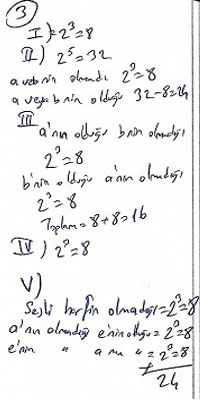 3
I) = 2³ = 8
II) 2⁵ = 32
a ve b nin olmadı 2³ = 8
a veya b nin olduğu 32 - 8 = 24
III a'nın olduğu b nin olmadığı
2³ = 8
b'nin olduğu a'nın olmadığı
2³ = 8
Toplam = 8 + 8 = 16
IV) 2³ = 8
V)
Sesli harfin olmadığı = 2³ = 8
a'nın olmadığı e'nin olduğu = 2³ = 8
e'nin " a nın " = 2³ = 8
+
24